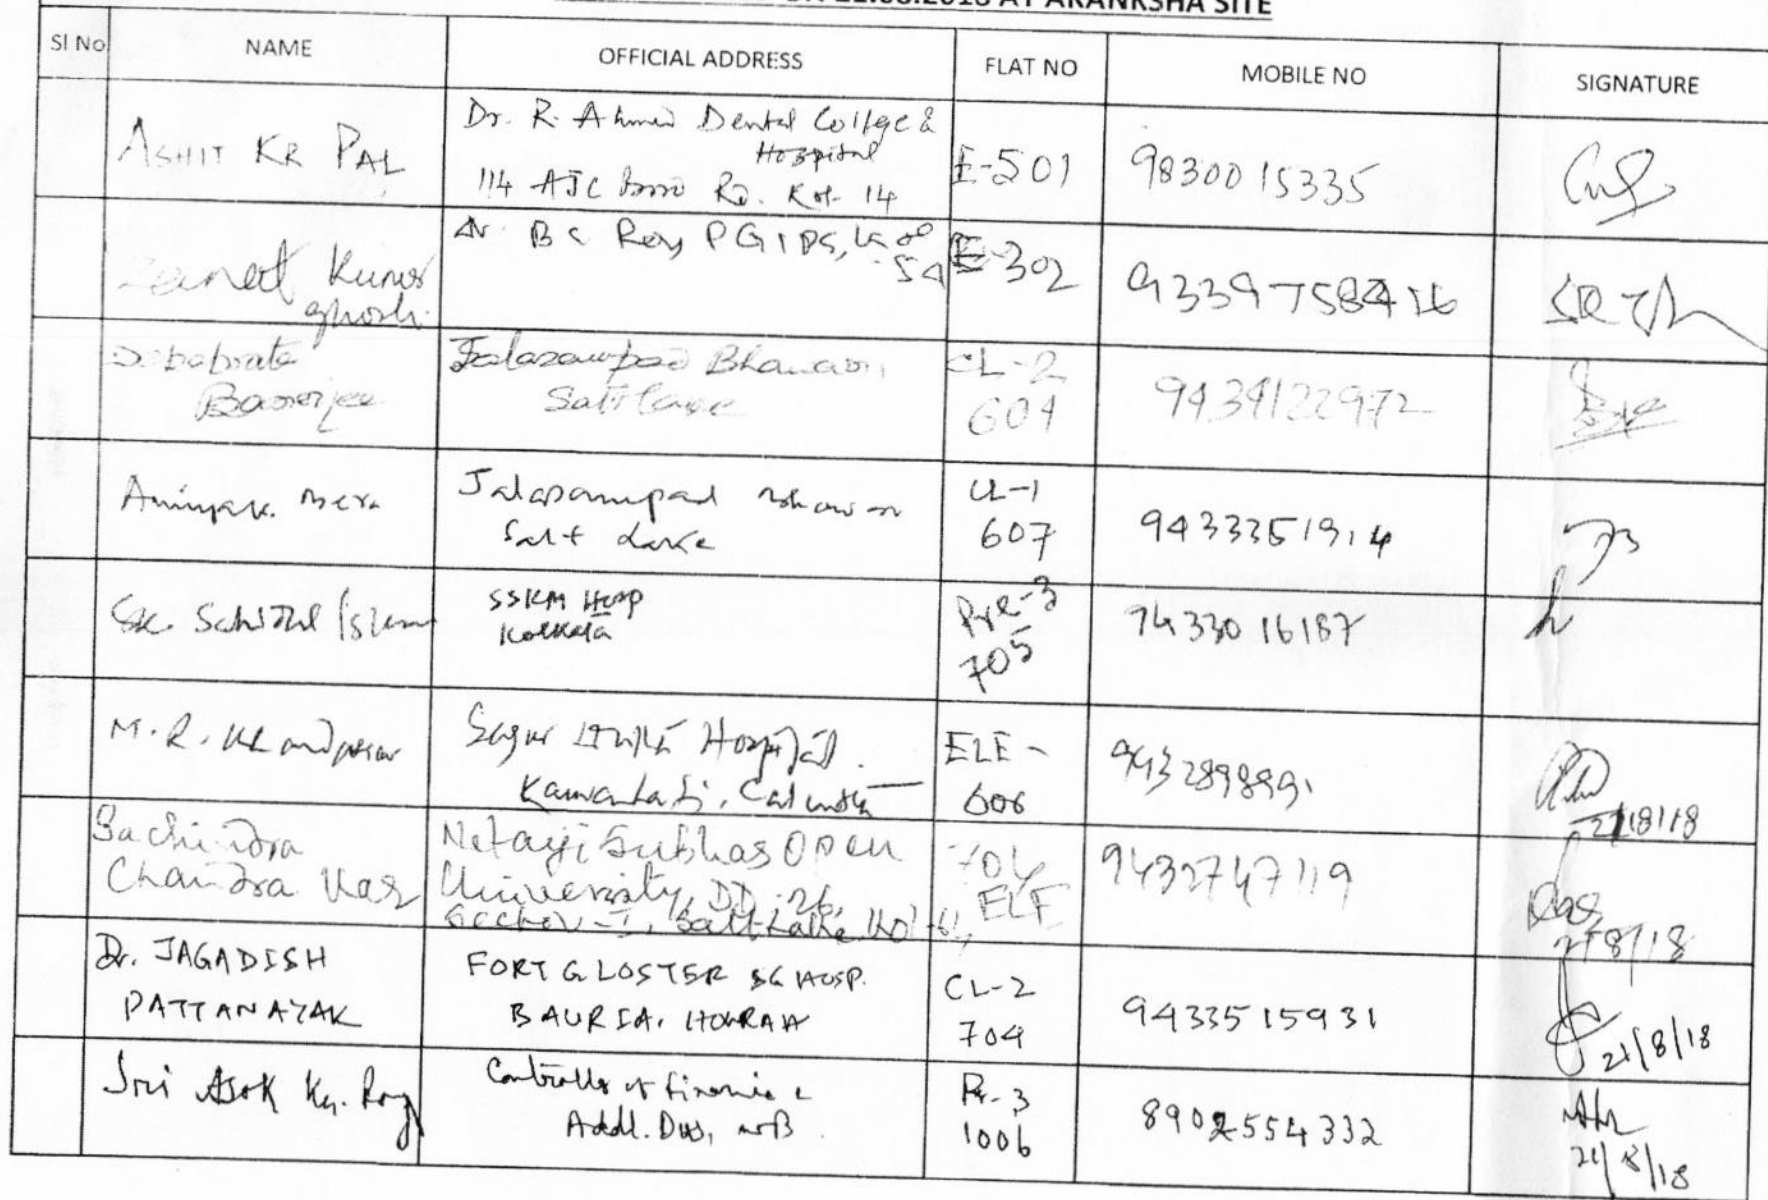 21.08.2018 AT AKANKSHA SITE
SI No NAME OFFICIAL ADDRESS FLAT NO MOBILE NO SIGNATURE
ASHIT KR PAL
Dr. R. Ahmed Dental College &
Hospital
114 AJC Bose Rd. Kol- 14
E-501
9830015335
Kumar
Ghosh
Dr. B C Roy PGIPS,
54
E-302
Debabrata
Banerjee
Jalasampad Bhavan,
Salt Lake
CL-2
604
9434122972
Bera
Jalasampad Bhawan
Salt Lake
CL-1
607
9433351914
Sk. Islam
SSKM HOSP
Kolkata
Pre-3
705
9433016187
M. R.
Hospital.
ELE -
606
21/8/18
Sachindra
Chandra Kar
Netaji Subhas Open
University, DD-26,
Sector-I, Salt Lake, Kol-64
704
ELE
9432747119
21/8/18
Dr. JAGADISH
PATTANAYAK
FORT GLOSTER SG HOSP.
BAURIA, HOWRAH
CL-2
704
9433515931
21/8/18
Sri Asok Kr. Roy
Controller of Finance
Addl. Dws, WB
Pr-3
1006
8902554332
21/8/18